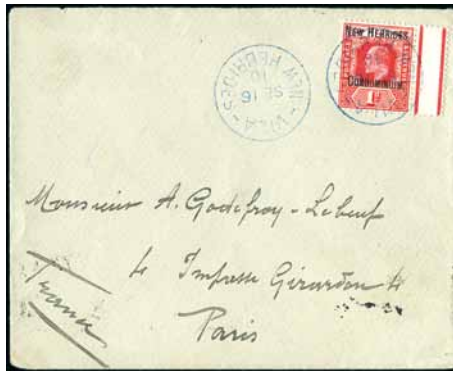 NEW HEBRIDES.
CONDOMINIUM.
1d
VILA
SE 16
10
NEW HEBRIDES
Monsieur A. Godefroy-Lebeuf
4 Impasse Girardon 4
Paris
France